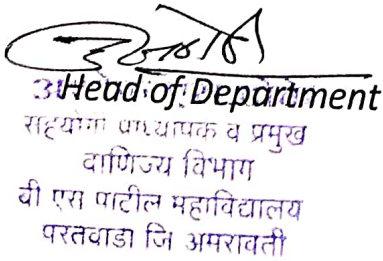 Head of Department
सहयोगी प्राध्यापक व प्रमुख
वाणिज्य विभाग
वी एस पाटील महाविद्यालय
परतवाडा जि अमरावती